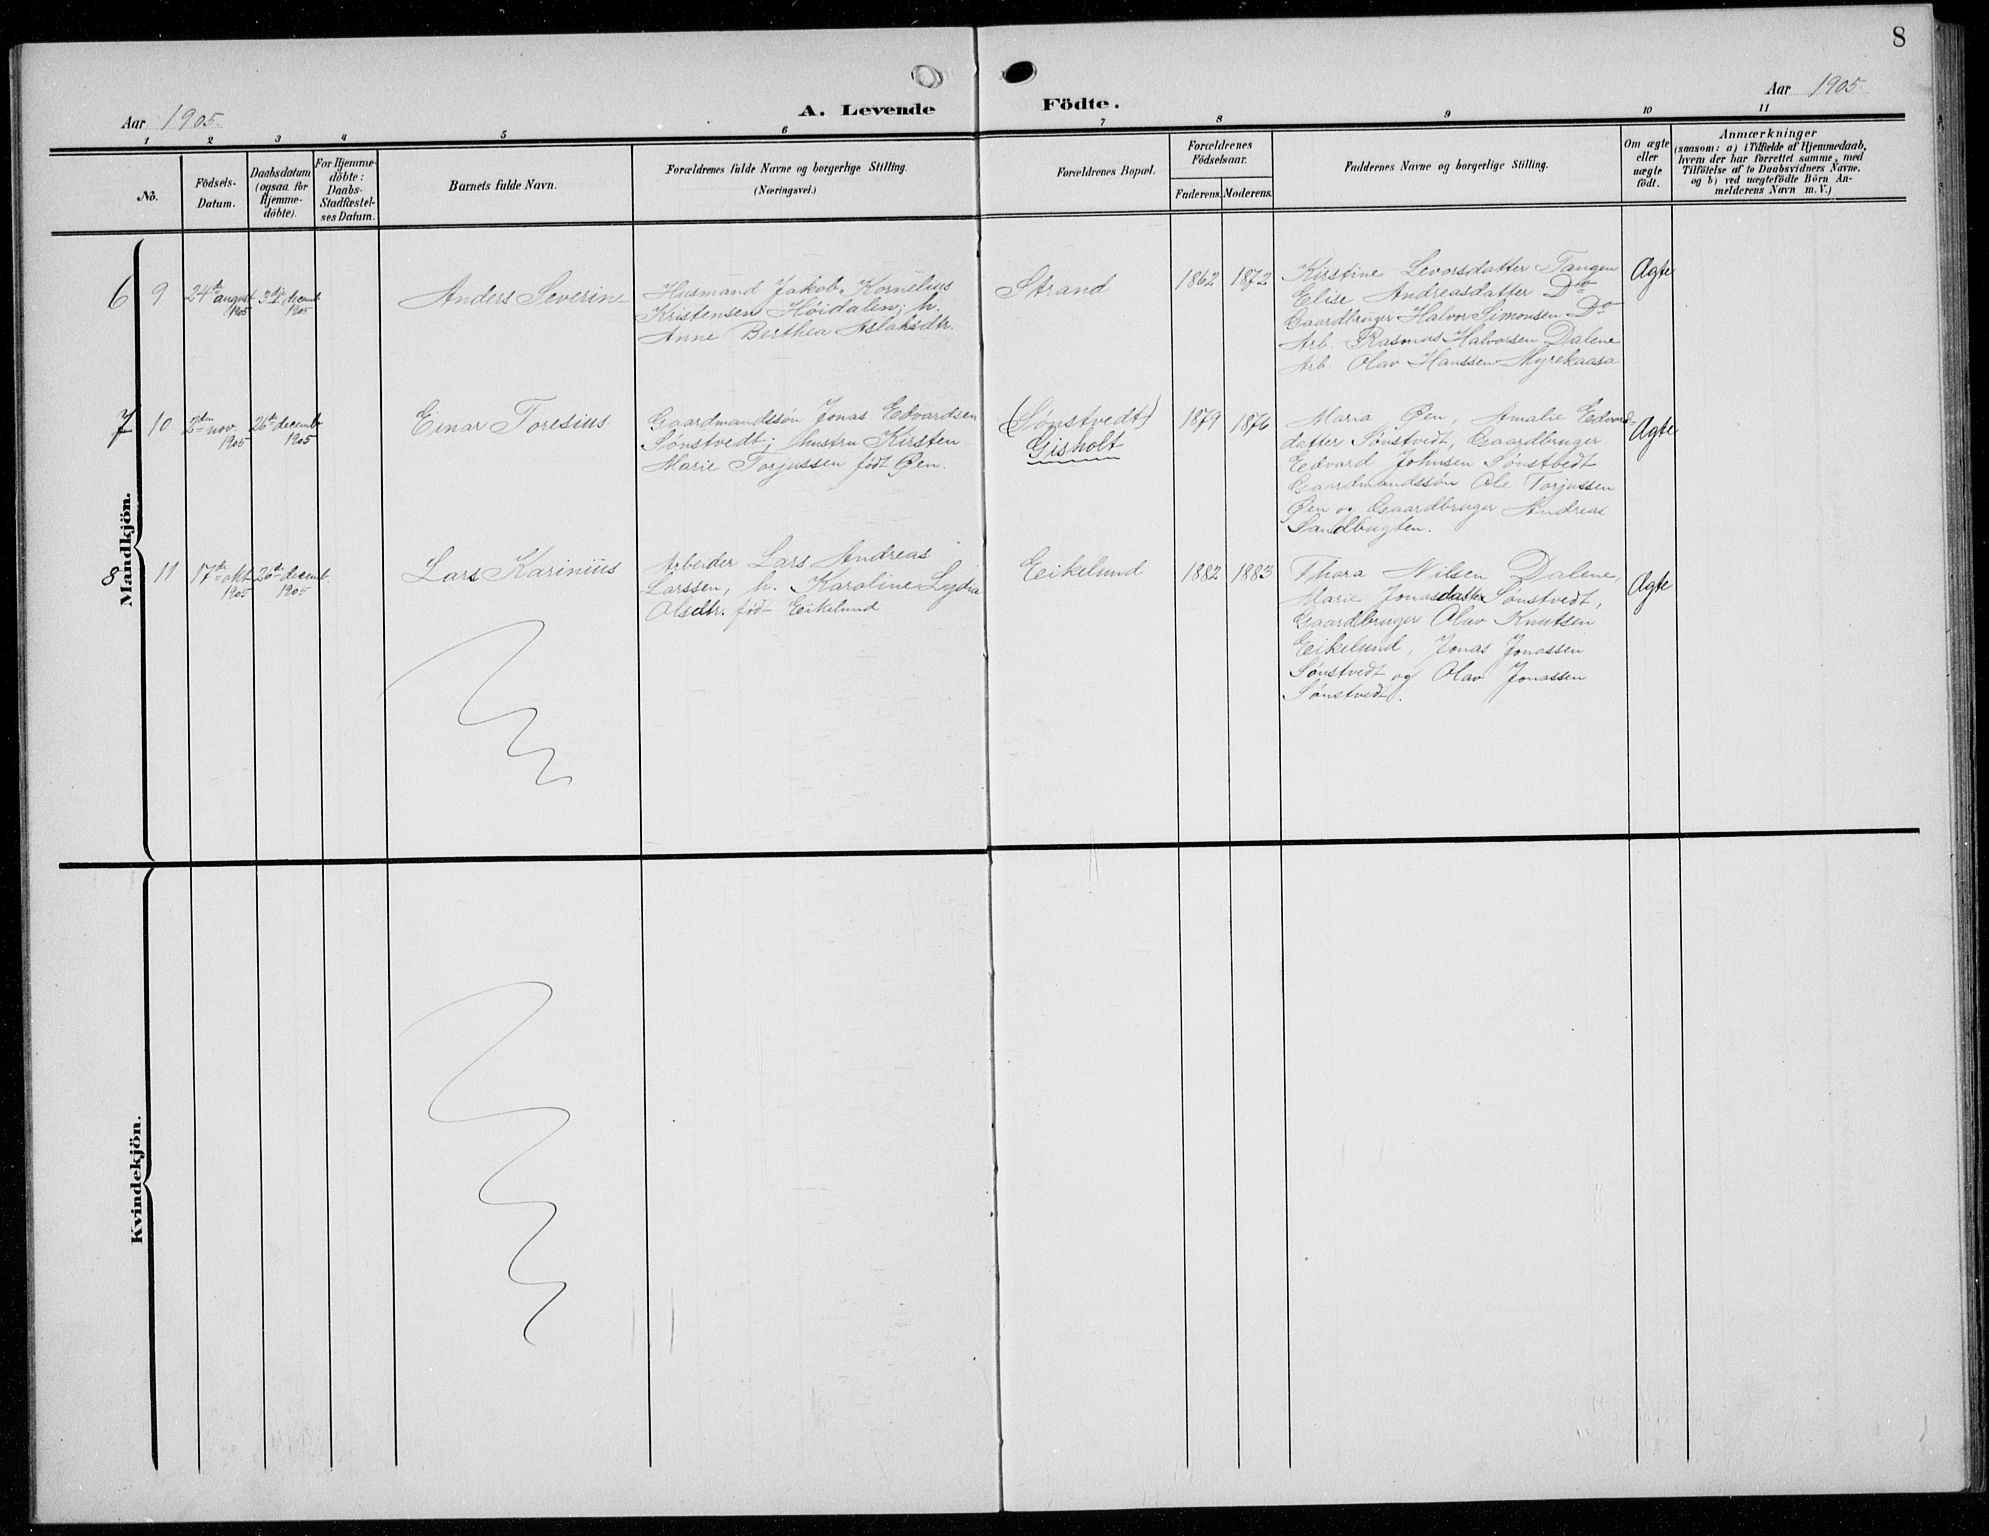 8
Aar 1905.
A. Levende
Födte.
Aar 1905.
1 2 3 4 5 6 7 8 9 10 11
No.
Födsels-
Datum.
Daabsdatum
(ogsaa for
Hjemme-
döbte).
For Hjemme-
döbte:
Daabs-
Stadfæstel-
ses Datum.
Barnets fulde Navn.
Forældrenes fulde Navne og borgerlige Stilling.
(Næringsvei.)
Forældrenes Bopæl.
Forældrenes
Födselsaar.
Faderens. Moderens.
Faddernes Navne og borgerlige Stilling.
Om ægte
eller
uægte
födt.
Anmærkninger
(saasom: a) i Tilfælde af Hjemmedaab,
hvem der har forrettet samme, med
Tilföielse af to Daabsvidners Navne.
og b) ved uægtefödte Börn An-
melderens Navn m. V.)
Mandkjön.
6 9
24de august
1905
3die decemb
1905
Anders Severin
Husmand Jakob Kornelius
Kristensen Höidalen; h.
Anne Berthea Aslaksdtr.
Strand
1862 1872
Kirstine Levorsdatter Tangen
Elise Andreasdatter Do
Gaardbruger Halvor Simonsen Do
Arb. Rasmus Halvorsen Dalene
Arb. Olav Hanssen Myrekaasa
Ægte
7 10
2den nov.
1905
26de decemb
1905
Einar Toresius
Gaardmandssøn Jonas Edvardsen
Sønstvedt; hustru Kirsten
Marie Torjussen født Øen.
(Sønstvedt)
Gisholt
1879 1876
Maria Øen, Amalie Edvards-
datter Sønstvedt, Gaardbruger
Edvard Johnsen Sønstvedt
Gaardmandssøn Ole Torjussen
Øen og Gaardbruger Andreas
Sandbugten.
Ægte
8 11
17de okt.
1905
26de decemb.
1905
Lars Karinius
Arbeider Lars Andreas
Larssen, h. Karoline Lydia
Olsdtr. født Eikelund
Eeikelund
1882 1883
Thora Nilsen Dalene,
Marie Jonasdatter Sønstvedt,
Gaardbruger Olav Knutsen
Eikelund, Jonas Jonassen
Sønstvedt og Olav Jonassen
Sønstvedt.
Ægte
Kvindekjön.